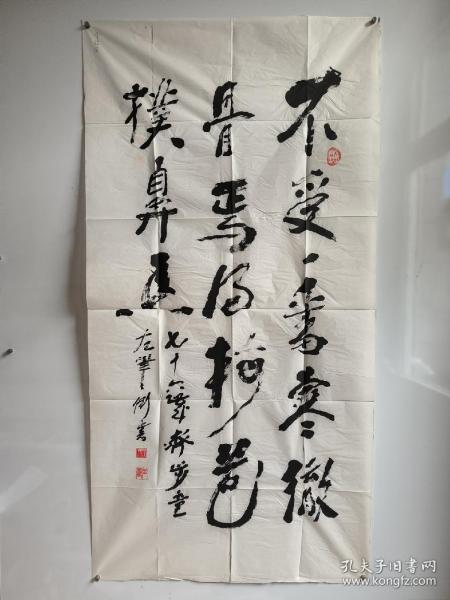 不受一番寒徹
骨焉得梅花
撲鼻香
七十六歲蔡步童
左筆倒書
孔夫子旧书网
www.kongfz.com